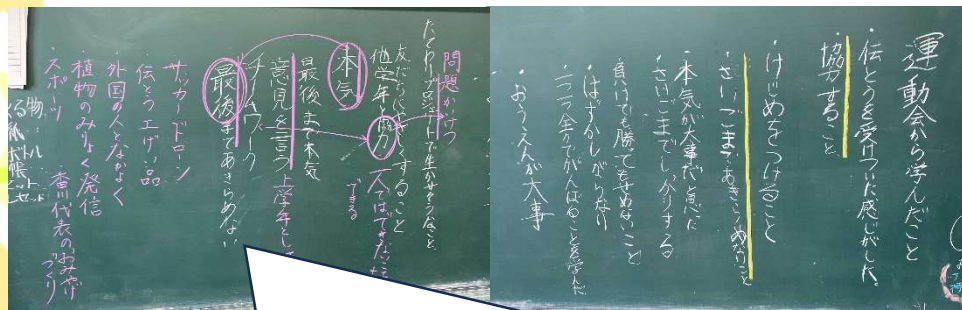 運動会から学んだこと
・伝とうを受けついだ感じがした。
・協力すること
・けじめをつけること
・さいごまであきらめないこと
・本気が大事だと感じた
・さいごまでしっかりする
・負けても勝ってもせめないこと
・はずかしがらない
・一つ一つ全てがんばることを学んだ
・おうえんが大事
たてわりプロジェクトで生かせそうなこと
友だちに
他学年 協力
一人ではできないこと
できる
問題かいけつ
本気
最後まで本気
意見を言う 上学年として
チームワーク
最後まであきらめない
サッカー ドローン
伝とう工げい品
・外国の人となかよく
・植物のみりょく発信
・スポーツ
香川代表のおみやげづくり